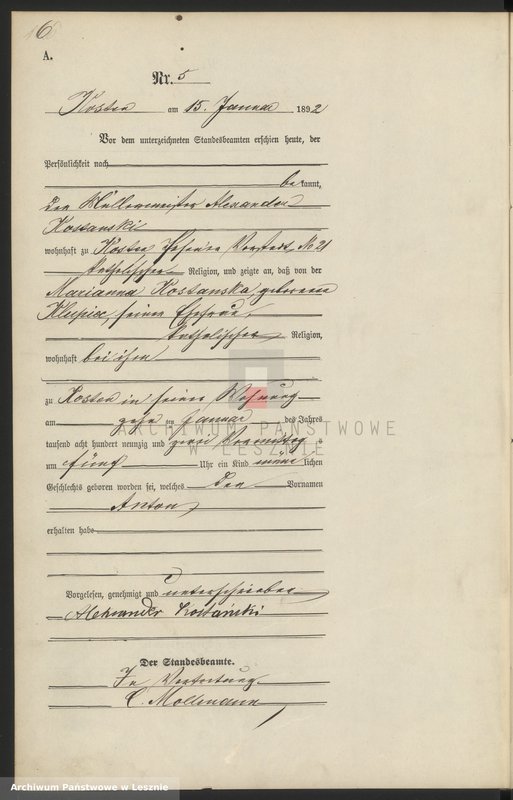 6
A.
Nr. 5
Kosten am 15. Januar 1892
Vor dem unterzeichneten Standesbeamten erschien heute, der
Persönlichkeit nach
bekannt,
der Müllermeister Alexander
Kostanski
wohnhaft zu Kosten Posener Vorstadt, No 21
katholischer Religion, und zeigte an, daß von der
Marianna Kostanska geborene
seiner Ehefrau,
katholischer Religion,
wohnhaft bei ihm
zu Kosten in seiner Wohnung
am zehn ten Januar des Jahres
tausend acht hundert neunzig und zwei Vormittag s
um fünf Uhr ein Kind männlichen
Geschlechts geboren worden sei, welches den Vornamen
Anton
erhalten habe
Vorgelesen, genehmigt und unterschrieben
Aleksander Kostański
Der Standesbeamte.
In Vertretung
C. Mollmann
ARCHIWUM PAŃSTWOWE
W LESZNIE
Archiwum Państwowe w Lesznie